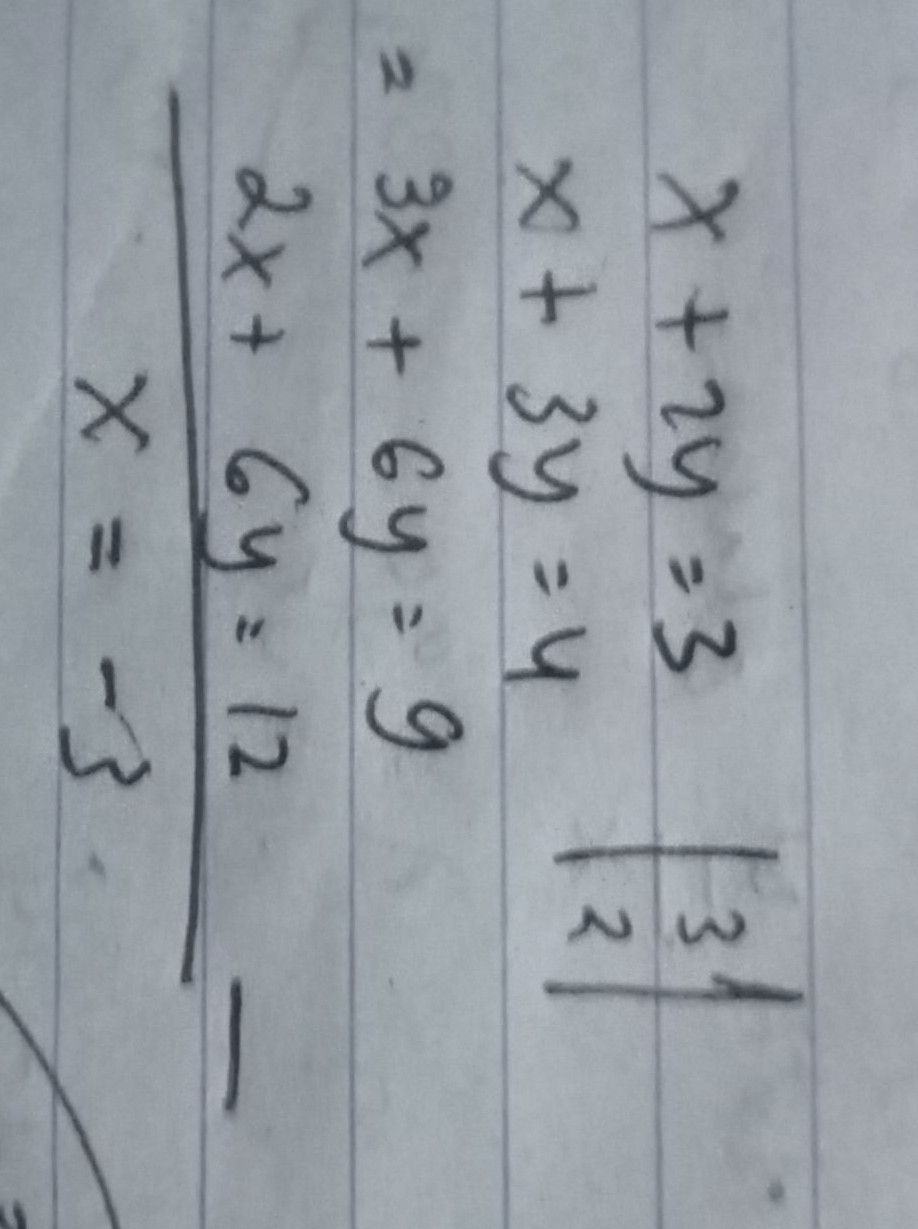 x + 2y = 3 | 3 |
x + 3y = 4 | 2 |
= 3x + 6y = 9
2x + 6y = 12 —
x = -3